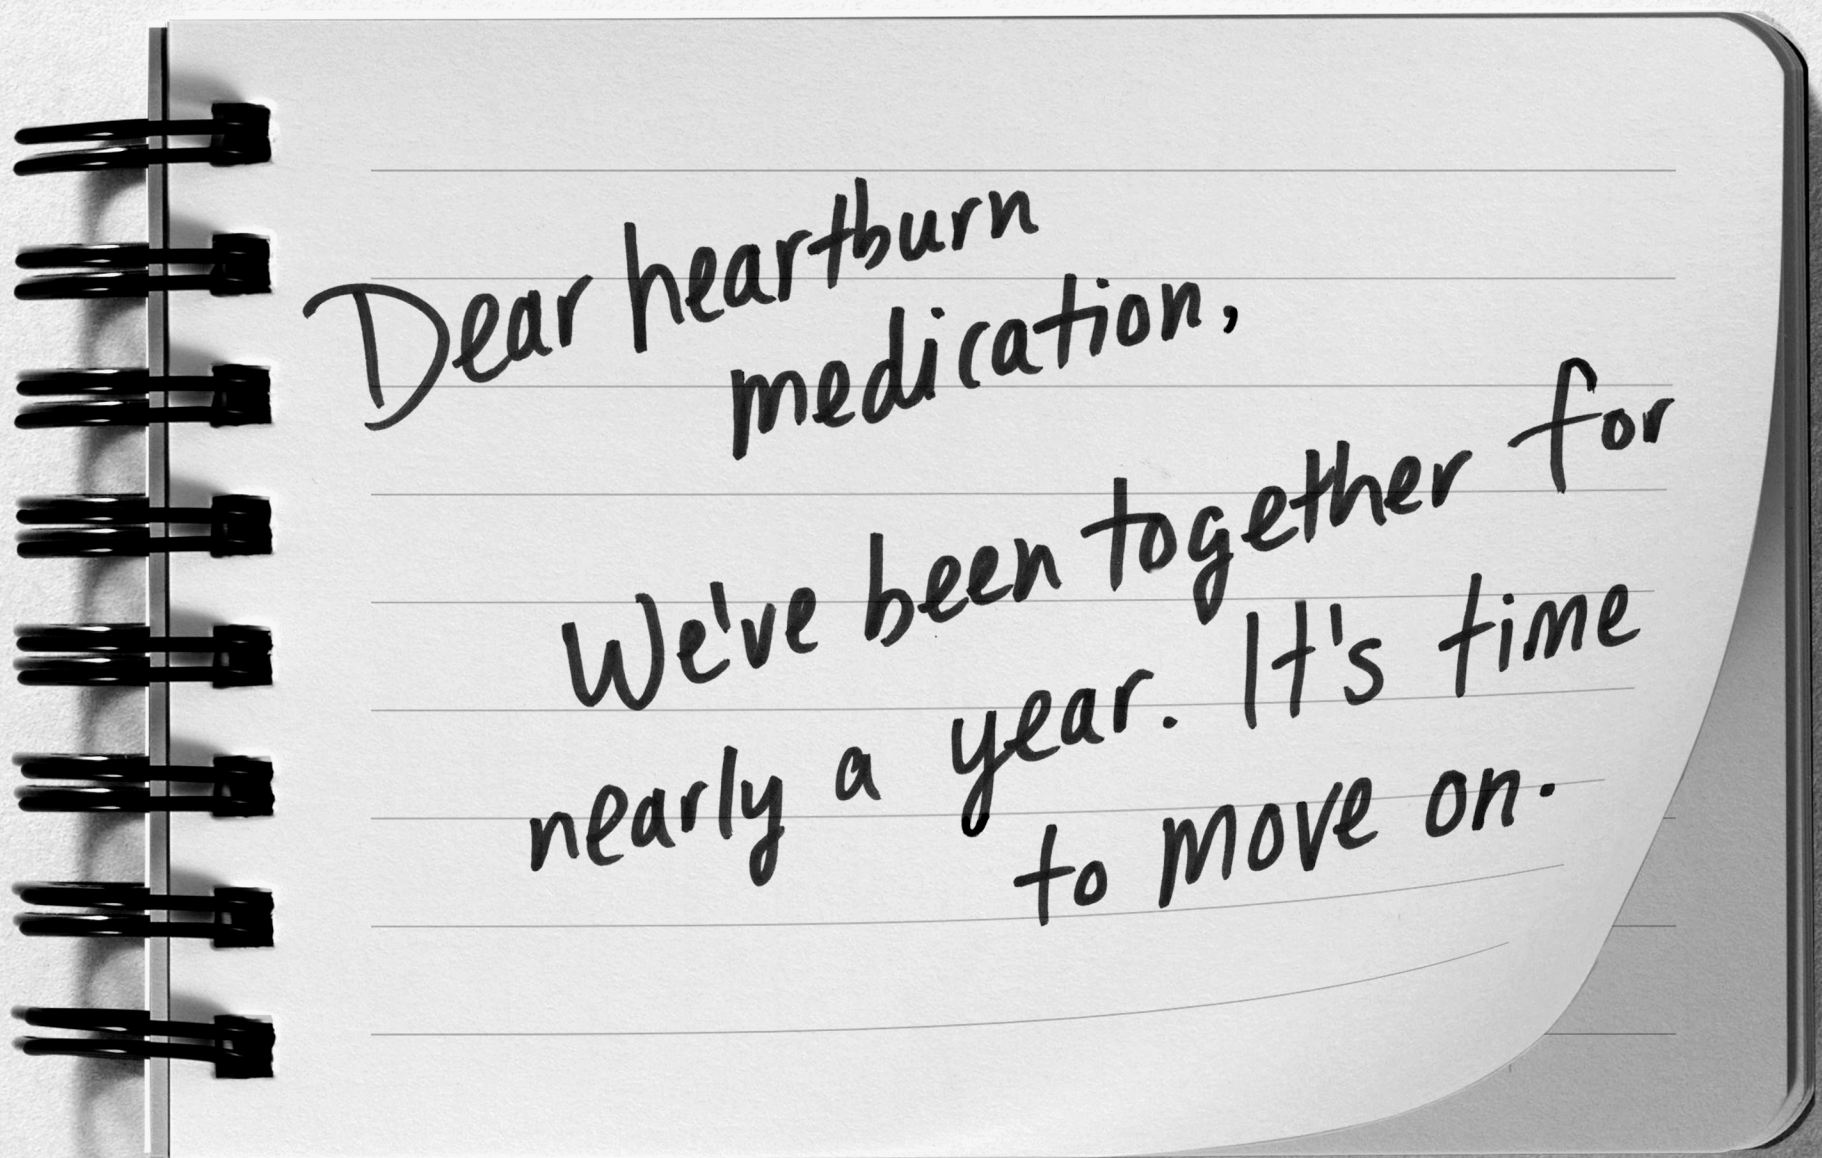 Dear heartburn
medication,
We've been together for
nearly a year. It's time
to move on.